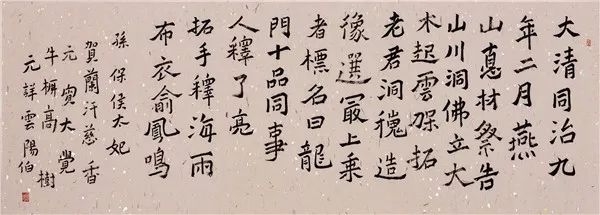 大清同治九
年二月燕
山惪林祭告
山川洞佛立大
木起雲架拓
老君洞魏造
像選冣上乘
者標名曰龍
門十品同事
人釋了亮
拓手釋海雨
布衣俞鳳鳴
孫保侯太妃
賀蘭汗慈香
元寅大覺
牛橛高樹
元詳雲陽伯